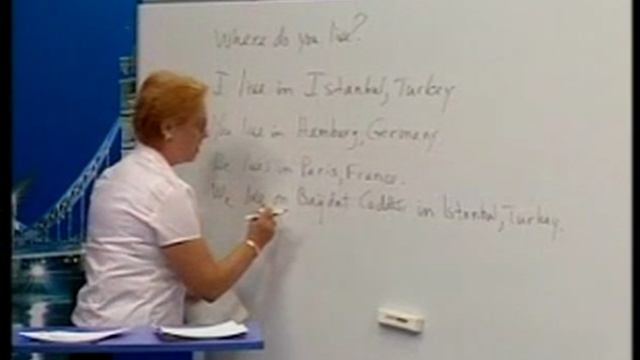 Where do you live?
I live in Istanbul, Turkey
You live in Hamburg, Germany.
He lives in Paris, France.
We live on Bağdat in Istanbul, Turkey.